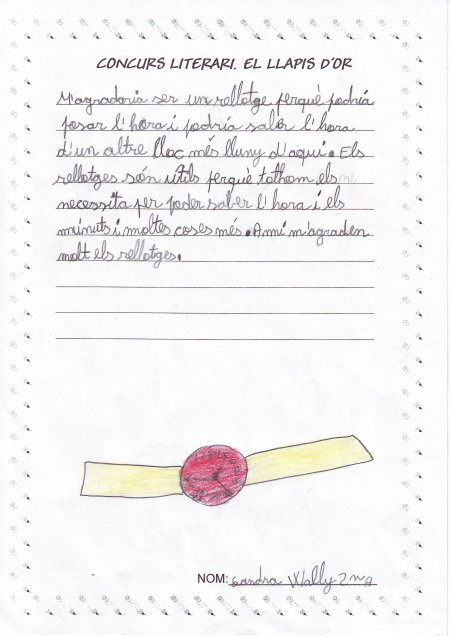 CONCURS LITERARI. EL LLAPIS D'OR
M'agradaria ser un rellotge perquè podria
posar l'hora i podría saber l'hora
d'un altre lloc més lluny d'aquí. Els
rellotges són útils perquè tothom els
necessita per poder saber l'hora i els
minuts i moltes coses més. A mi m'agraden
molt els rellotges.
NOM: Sandra Wally 2n A